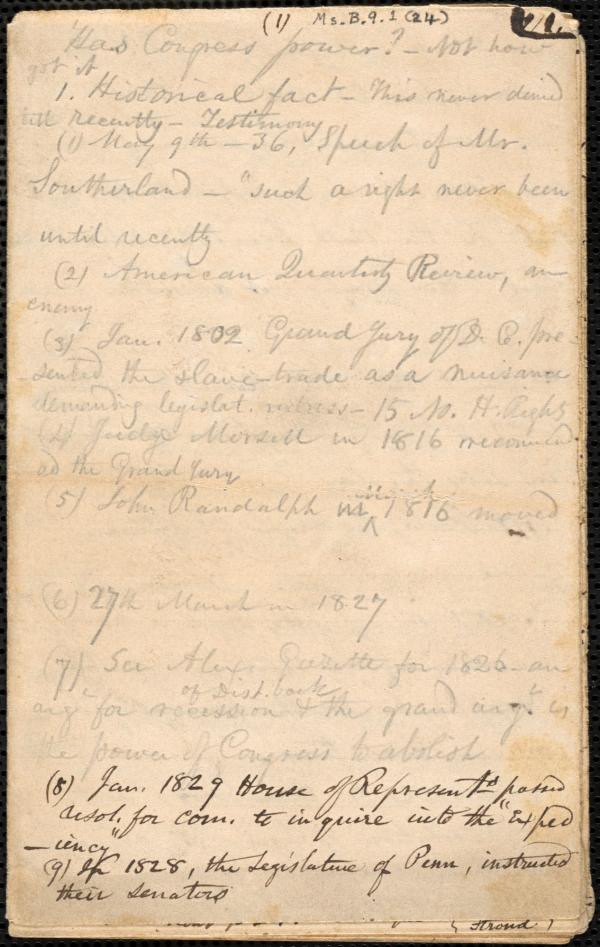 (1) Ms. B. 9. 1 (24)
Has Congress power? - Not how
got it
1. Historical fact - This never denied
till recently - Testimony
(1) May 9th - 36, Speech of Mr.
Southerland - "such a right never been
until recently
(2) American Quarterly Review, an
enemy
(3) Jan. 1802 Grand Jury of D. C. pre-
sented the slave-trade as a nuisance
demanding legislat. redress - 15 No. H. Rights
(4) Judge Morsell in 1816 recommend
ed the Grand Jury
(5) John Randolph in 1816 moved
(6) 27th March in 1827
(7) See Alex. Gazette for 1826 - an
of Dist. back
arg't for recession & the grand arg't is
the power of Congress to abolish
(8) Jan. 1829 House of Represent's passed
resol. for com. to inquire into the "Exped
-iency"
(9) In 1828, the Legislature of Penn, instructed
their senators
(Stroud)